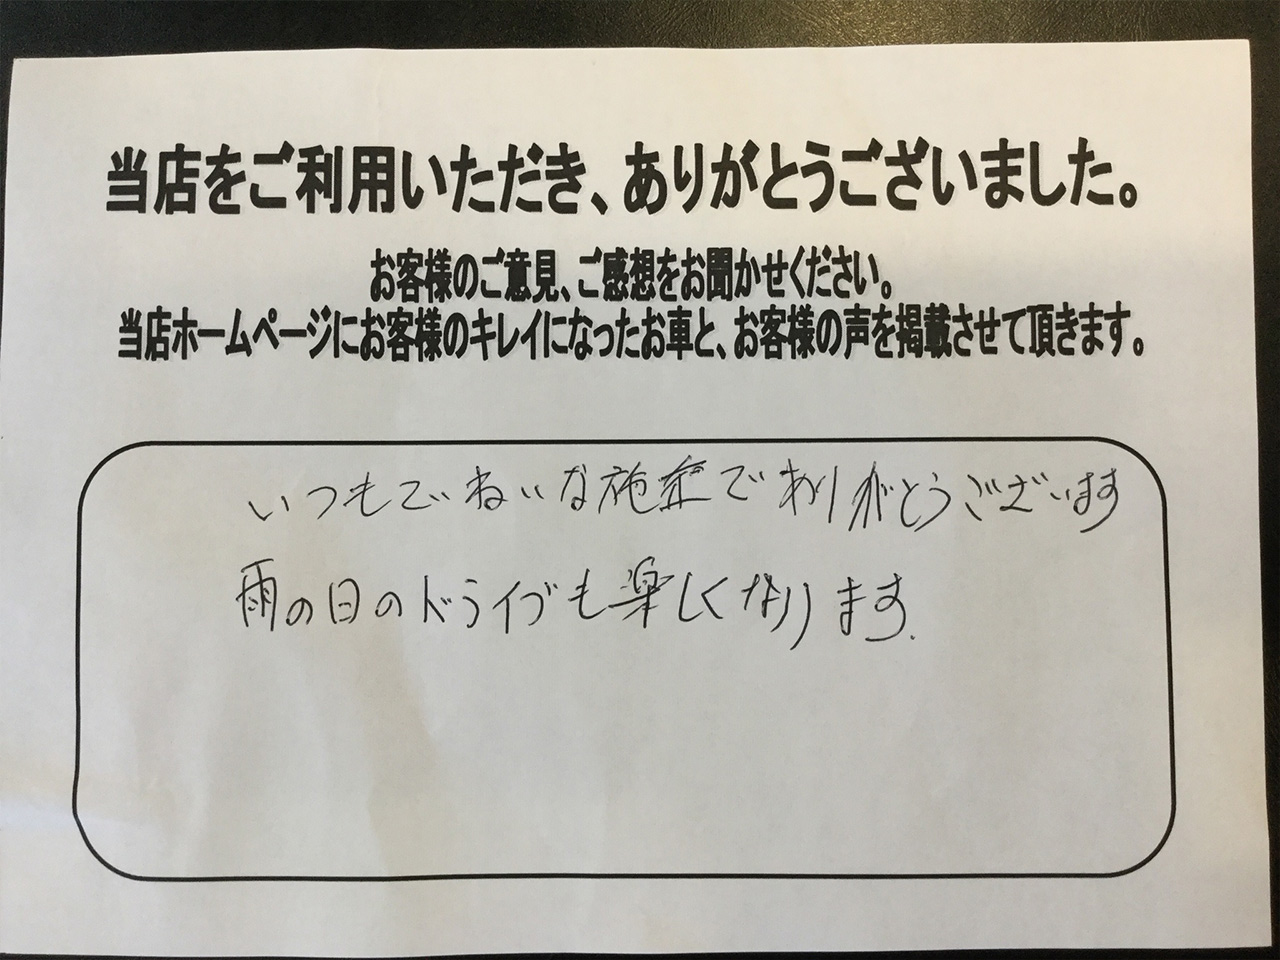 当店をご利用いただき、ありがとうございました。
お客様のご意見、ご感想をお聞かせください。
当店ホームページにお客様のキレイになったお車と、お客様の声を掲載させて頂きます。
いつもていねいな施工でありがとうございます
雨の日のドライブも楽しくなります.